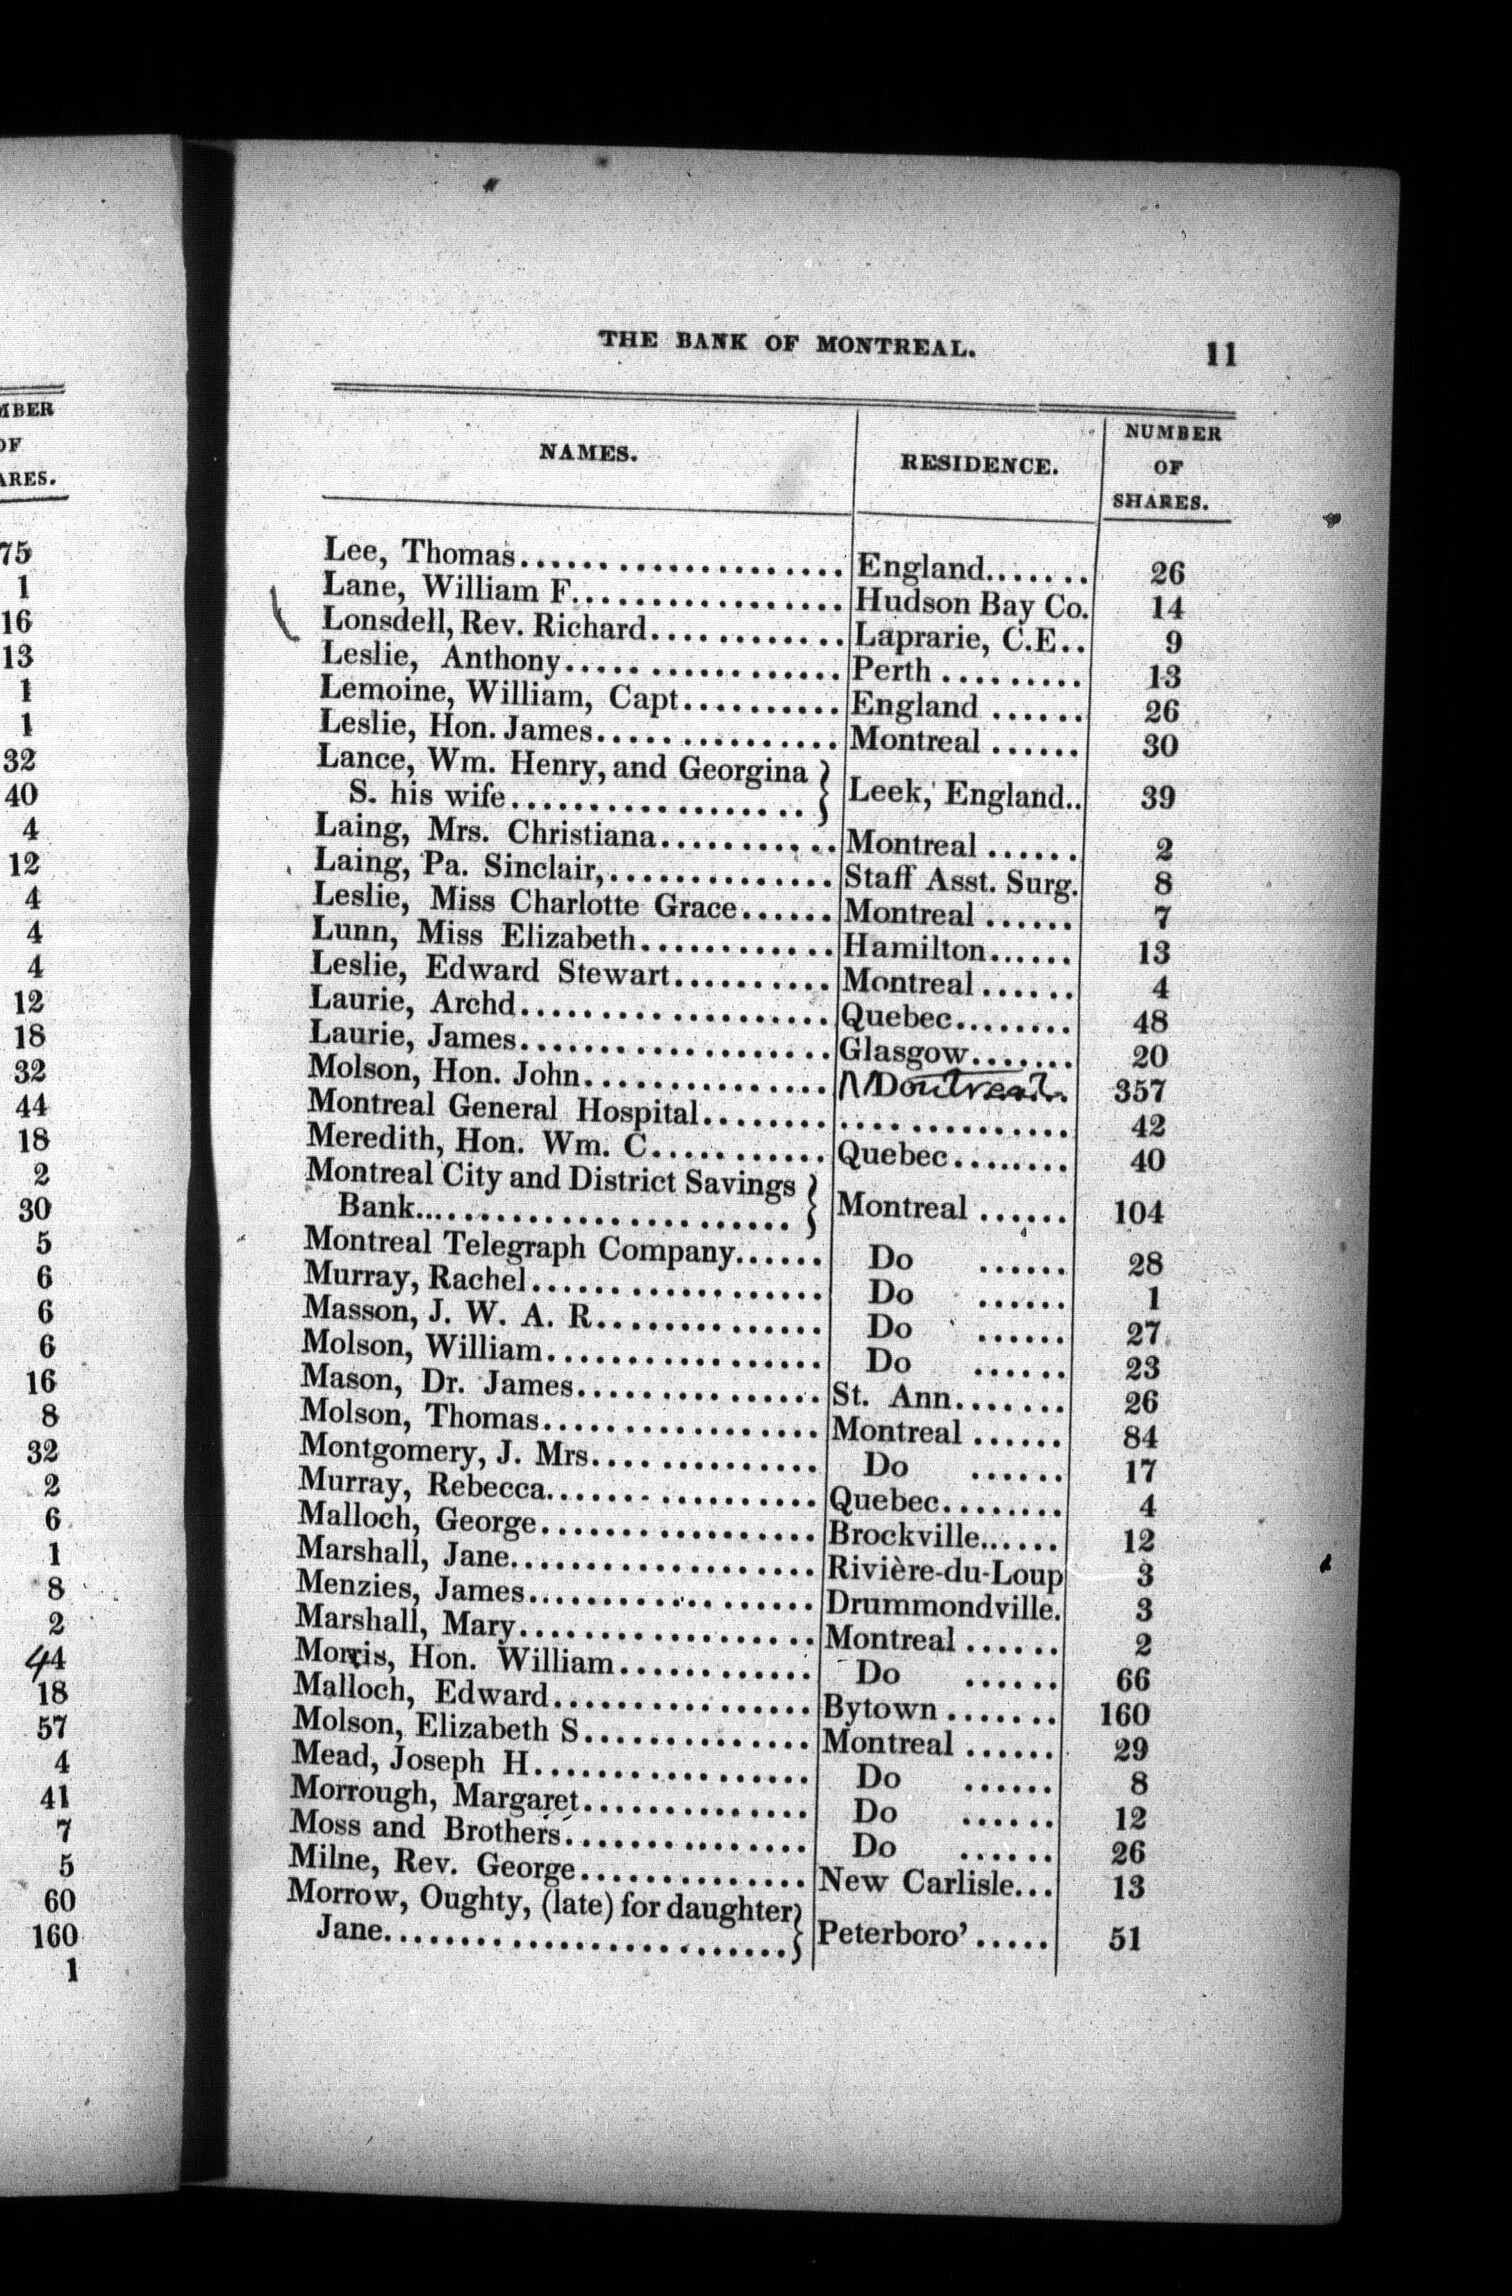 MBER
OF
ARES.
75
1
16
13
1
1
32
40
4
12
4
4
4
12
18
32
44
18
2
30
5
6
6
6
16
8
32
2
6
1
8
2
44
18
57
4
41
7
5
60
160
1
THE BANK OF MONTREAL. 11
NAMES. RESIDENCE. NUMBER
OF
SHARES.
Lee, Thomas.................... England....... 26
Lane, William F................. Hudson Bay Co. 14
Lonsdell, Rev. Richard............ Laprarie, C.E.. 9
Leslie, Anthony................. Perth ......... 13
Lemoine, William, Capt.......... England ...... 26
Leslie, Hon. James............... Montreal ...... 30
Lance, Wm. Henry, and Georgina }
S. his wife.................. } Leek, England.. 39
Laing, Mrs. Christiana........... Montreal ...... 2
Laing, Pa. Sinclair,.............. Staff Asst. Surg. 8
Leslie, Miss Charlotte Grace...... Montreal ...... 7
Lunn, Miss Elizabeth............ Hamilton...... 13
Leslie, Edward Stewart.......... Montreal ...... 4
Laurie, Archd................... Quebec........ 48
Laurie, James................... Glasgow....... 20
Molson, Hon. John............... Do Montreal... 357
Montreal General Hospital........ .............. 42
Meredith, Hon. Wm. C........... Quebec........ 40
Montreal City and District Savings }
Bank....................... } Montreal ...... 104
Montreal Telegraph Company...... Do ...... 28
Murray, Rachel.................. Do ...... 1
Masson, J. W. A. R.............. Do ...... 27
Molson, William................. Do ...... 23
Mason, Dr. James............... St. Ann....... 26
Molson, Thomas................. Montreal ...... 84
Montgomery, J. Mrs.............. Do ...... 17
Murray, Rebecca................ Quebec........ 4
Malloch, George................. Brockville...... 12
Marshall, Jane.................. Rivière-du-Loup 3
Menzies, James.................. Drummondville. 3
Marshall, Mary.................. Montreal ...... 2
Morris, Hon. William............ Do ...... 66
Malloch, Edward................ Bytown ....... 160
Molson, Elizabeth S.............. Montreal ...... 29
Mead, Joseph H................. Do ...... 8
Morrough, Margaret.............. Do ...... 12
Moss and Brothers............... Do ...... 26
Milne, Rev. George.............. New Carlisle... 13
Morrow, Oughty, (late) for daughter }
Jane......................... } Peterboro’ ..... 51